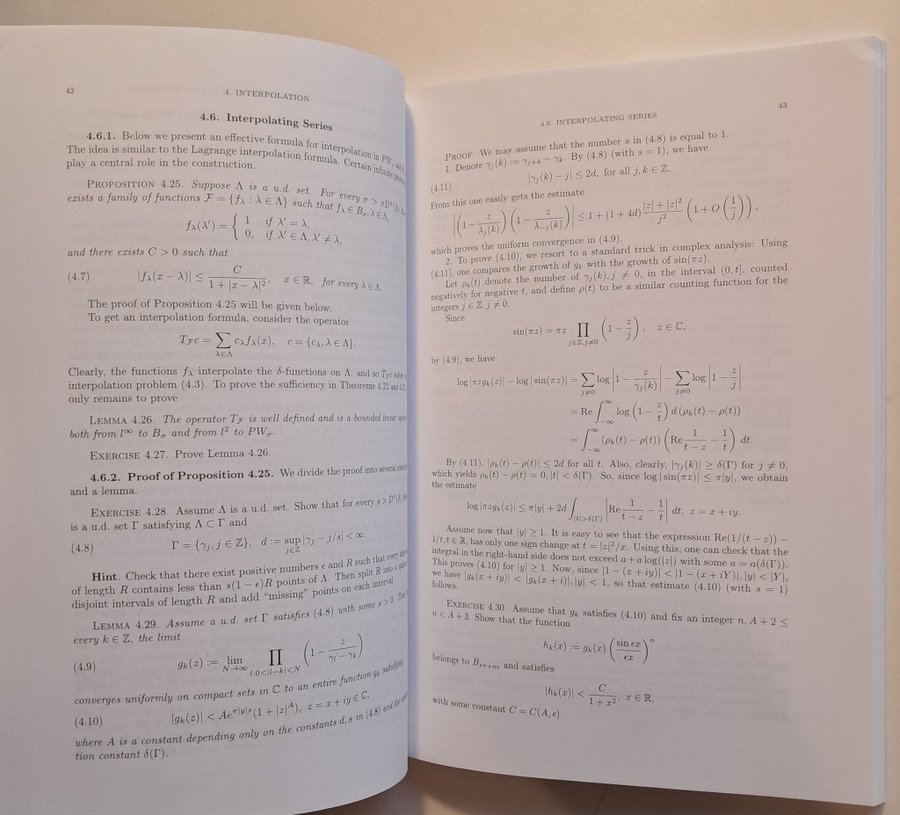 42
4. INTERPOLATION
4.6. Interpolating Series
4.6.1. Below we present an effective formula for interpolation in PW_σ
The idea is similar to the Lagrange interpolation formula. Certain infinite
play a central role in the construction.
PROPOSITION 4.25. Suppose Λ is a u.d. set. For every σ > πD⁺(Λ)
exists a family of functions F = {f_λ : λ ∈ Λ} such that f_λ ∈ B_σ, λ ∈ Λ,
f_λ(λ′) = { 1 if λ′ = λ,
0, if λ′ ∈ Λ, λ′ ≠ λ,
and there exists C > 0 such that
(4.7) |f_λ(x − λ)| ≤ C / (1 + |x − λ|²), x ∈ ℝ, for every λ ∈ Λ.
The proof of Proposition 4.25 will be given below.
To get an interpolation formula, consider the operator
T_F c = ∑_{λ∈Λ} c_λ f_λ(x), c = {c_λ, λ ∈ Λ}.
Clearly, the functions f_λ interpolate the δ-functions on Λ, and so T_F c
interpolation problem (4.3). To prove the sufficiency in Theorems 4.22 and
only remains to prove
LEMMA 4.26. The operator T_F is well defined and is a bounded linear
both from l^∞ to B_σ and from l² to PW_σ.
EXERCISE 4.27. Prove Lemma 4.26.
4.6.2. Proof of Proposition 4.25. We divide the proof into several
and a lemma.
EXERCISE 4.28. Assume Λ is a u.d. set. Show that for every s > D⁺(Λ)
is a u.d. set Γ satisfying Λ ⊂ Γ and
(4.8) Γ = {γ_j, j ∈ ℤ}, d := sup_{j∈ℤ} |γ_j − j/s| < ∞.
Hint. Check that there exist positive numbers ϵ and R such that every
of length R contains less than s(1 − ϵ)R points of Λ. Then split ℝ into
disjoint intervals of length R and add “missing” points on each interval.
LEMMA 4.29. Assume a u.d. set Γ satisfies (4.8) with some s > 0.
every k ∈ ℤ, the limit
(4.9) g_k(z) := lim_{N→∞} ∏_{l:0<|l−k|<N} (1 − z/(γ_l − γ_k))
converges uniformly on compact sets in ℂ to an entire function g_k satisfying
(4.10) |g_k(z)| < Ae^{π|y|s}(1 + |z|^A), z = x + iy ∈ ℂ,
where A is a constant depending only on the constants d, s in (4.8) and the
tion constant δ(Γ).
4.6. INTERPOLATING SERIES
43
PROOF. We may assume that the number s in (4.8) is equal to 1.
1. Denote γ_j(k) := γ_{j+k} − γ_k. By (4.8) (with s = 1), we have
(4.11) |γ_j(k) − j| ≤ 2d, for all j, k ∈ ℤ.
From this one easily gets the estimate
|(1 − z/λ_j(k)) (1 − z/λ_{−j}(k))| ≤ 1 + (1 + 4d) (|z| + |z|²)/j² (1 + O(1/j)),
which proves the uniform convergence in (4.9).
2. To prove (4.10), we resort to a standard trick in complex analysis: Using
(4.11), one compares the growth of g_k with the growth of sin(πz).
Let ρ_k(t) denote the number of γ_j(k), j ≠ 0, in the interval (0, t], counted
negatively for negative t, and define ρ(t) to be a similar counting function for the
integers j ∈ ℤ, j ≠ 0.
Since
sin(πz) = πz ∏_{j∈ℤ,j≠0} (1 − z/j), z ∈ ℂ,
by (4.9), we have
log |πzg_k(z)| − log |sin(πz)| = ∑_{j≠0} log |1 − z/γ_j(k)| − ∑_{j≠0} log |1 − z/j|
= Re ∫_{−∞}^{∞} log (1 − z/t) d(ρ_k(t) − ρ(t))
= ∫_{−∞}^{∞} (ρ_k(t) − ρ(t)) (Re 1/(t − z) − 1/t) dt.
By (4.11), |ρ_k(t) − ρ(t)| ≤ 2d for all t. Also, clearly, |γ_j(k)| ≥ δ(Γ) for j ≠ 0,
which yields ρ_k(t) − ρ(t) = 0, |t| < δ(Γ). So, since log |sin(πz)| ≤ π|y|, we obtain
the estimate
log |πzg_k(z)| ≤ π|y| + 2d ∫_{|t|>δ(Γ)} |Re 1/(t − z) − 1/t| dt, z = x + iy.
Assume now that |y| ≥ 1. It is easy to see that the expression Re(1/(t − z)) −
1/t, t ∈ ℝ, has only one sign change at t = |z|²/x. Using this, one can check that the
integral in the right-hand side does not exceed a + a log(|z|) with some a = a(δ(Γ)).
This proves (4.10) for |y| ≥ 1. Now, since |1 − (x + iy)| < |1 − (x + iY)|, |y| < |Y|,
we have |g_k(x + iy)| < |g_k(x + i)|, |y| < 1, so that estimate (4.10) (with s = 1)
follows.
EXERCISE 4.30. Assume that g_k satisfies (4.10) and fix an integer n, A + 2 ≤
n < A + 3. Show that the function
h_k(x) := g_k(x) (sin ϵx / ϵx)^n
belongs to B_{sπ+nϵ} and satisfies
|h_k(x)| < C / (1 + x²), x ∈ ℝ,
with some constant C = C(A, ϵ).